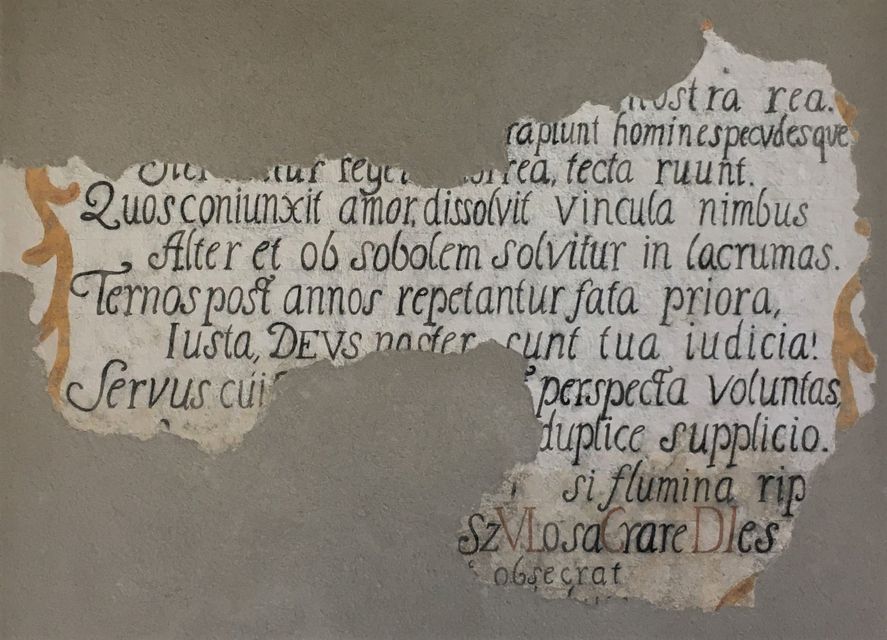 nostra rea.
rapiunt hominespecvdesque
rea, tecta ruunt.
Quos coniunxit amor, dissolvit vincula nimbus
Alter et ob sobolem solvitur in lacrumas.
Ternos post annos repetantur fata priora,
Iusta, DEVS noster sunt tua iudicia!
Servus cui perspecta voluntas,
duplice supplicio.
si flumina rip
SzVLosaCrareDIes
obsecrat